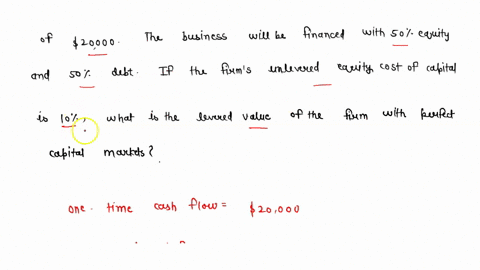 of $20,000. The business will be financed with 50% equity
and 50% debt. If the firm's unlevered equity cost of capital
is 10%, what is the levered value of the firm with perfect
capital markets?
one-time cash flow = $20,000